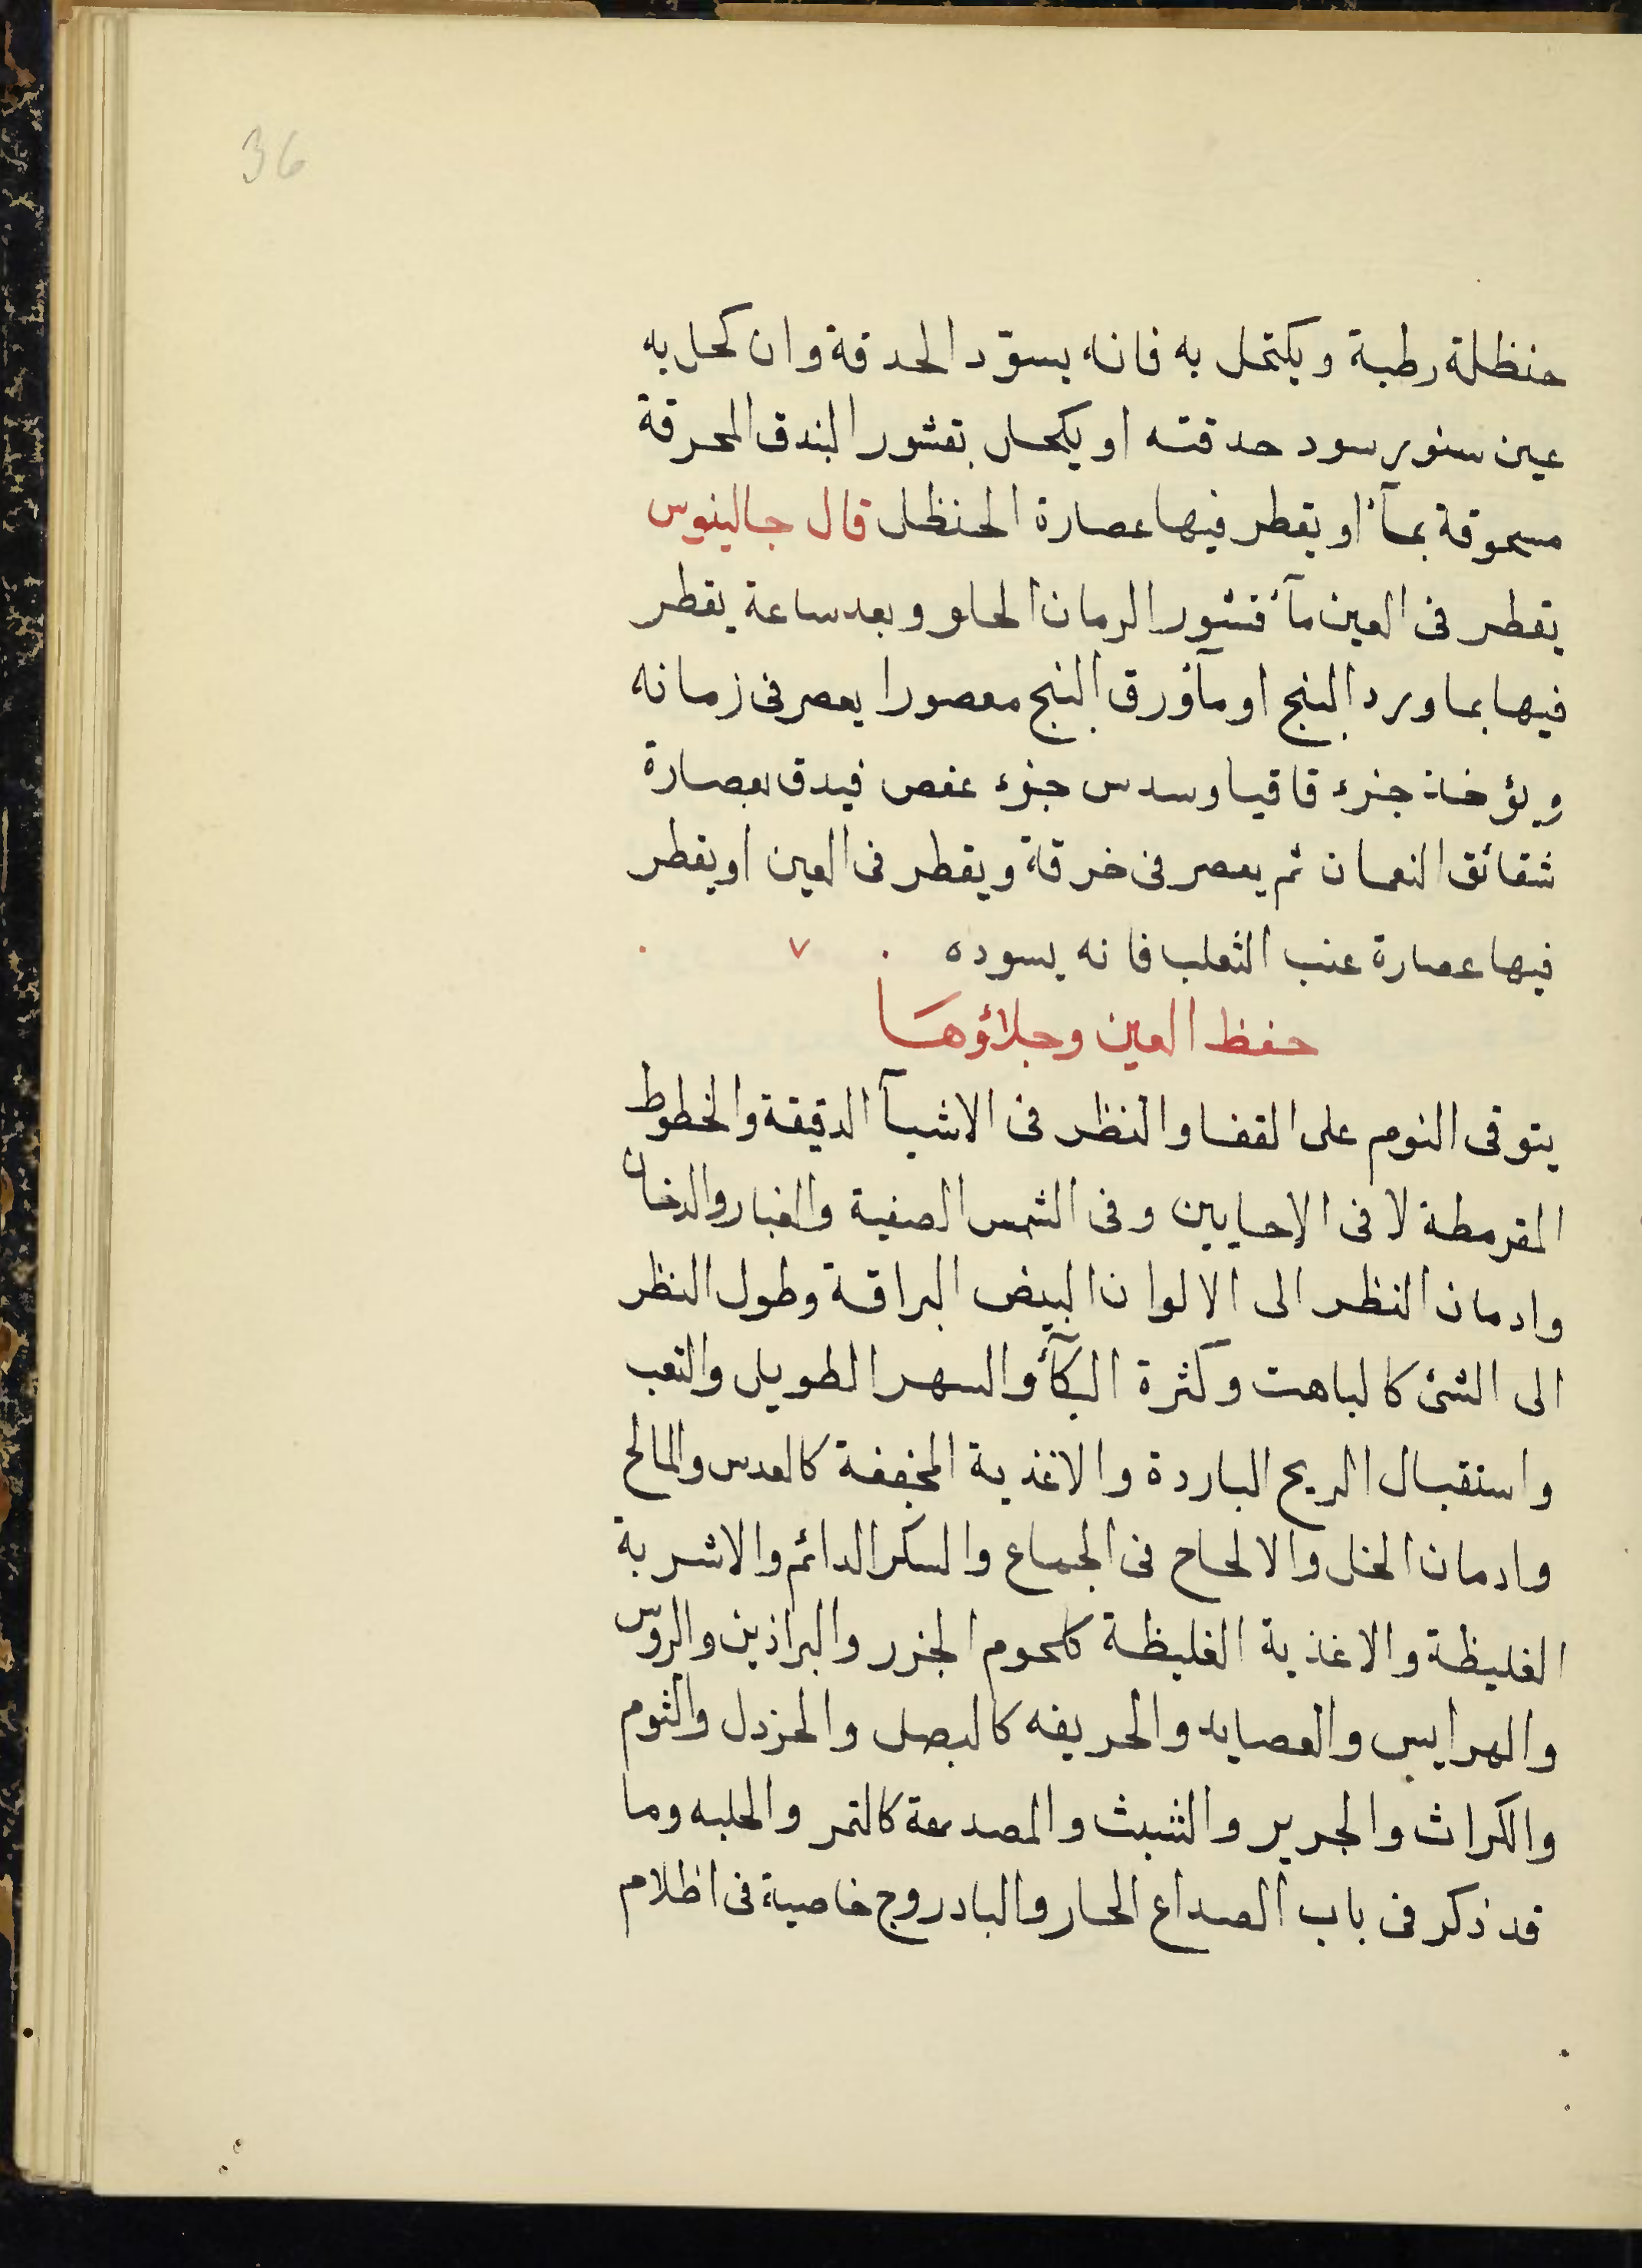 36
حنظلة رطبة ويكتحل به فانه يسوّد الحدقة وان كحل به
عين سنور سود حدقته او يكحل بقشور البندق المحرقة
مسحوقة بمآء او يقطر فيها عصارة الحنظل قال جالينوس
يقطر فى العين مآء قشور الرمان الحلو وبعد ساعة يقطر
فيها بماورد البنج او مآء ورق البنج معصورا يعصر فى زمانه
ويؤخذ جزء قاقيا وسدس جزء عفص فيدق بعصارة
شقائق النعمان ثم يعصر فى خرقة ويقطر فى العين او يقطر
فيها عصارة عنب الثعلب فانه يسوده
حفظ العين وجلاؤها
يتوقى النوم على القفا والنظر فى الاشيآء الدقيقة والخطوط
المقرمطة لا فى الاحايين وفى الشمس الصفية والغبار والدخان
وادمان النظر الى الالوان البيض البراقة وطول النظر
الى الشئ كالباهت وكثرة البكآء والسهر الطويل والتعب
واستقبال الريح الباردة والاغذية المجففة كالعدس والمالح
وادمان الخل والالحاح فى الجماع والسكر الدائم والاشربة
الغليظة والاغذية الغليظة كلحوم الجزر والبراذين والروس
والهرايس والعصايد والحريفه كالبصل والخردل والثوم
والكراث والجرير والشبث والمصدعة كالتمر والحلبه وما
قد ذكر فى باب الصداع الحار والبادروج خاصية فى اظلام